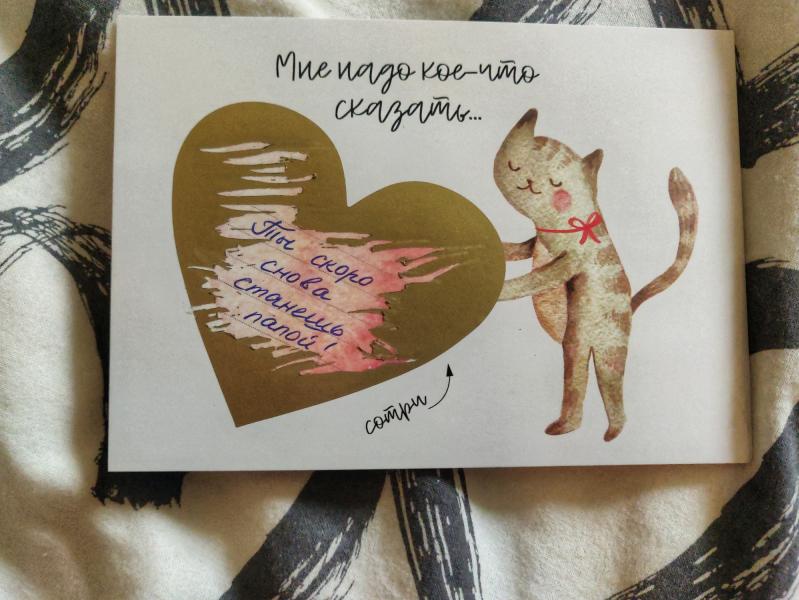 Мне надо кое-что
сказать...
Ты скоро
снова
станешь
папой!
сотри